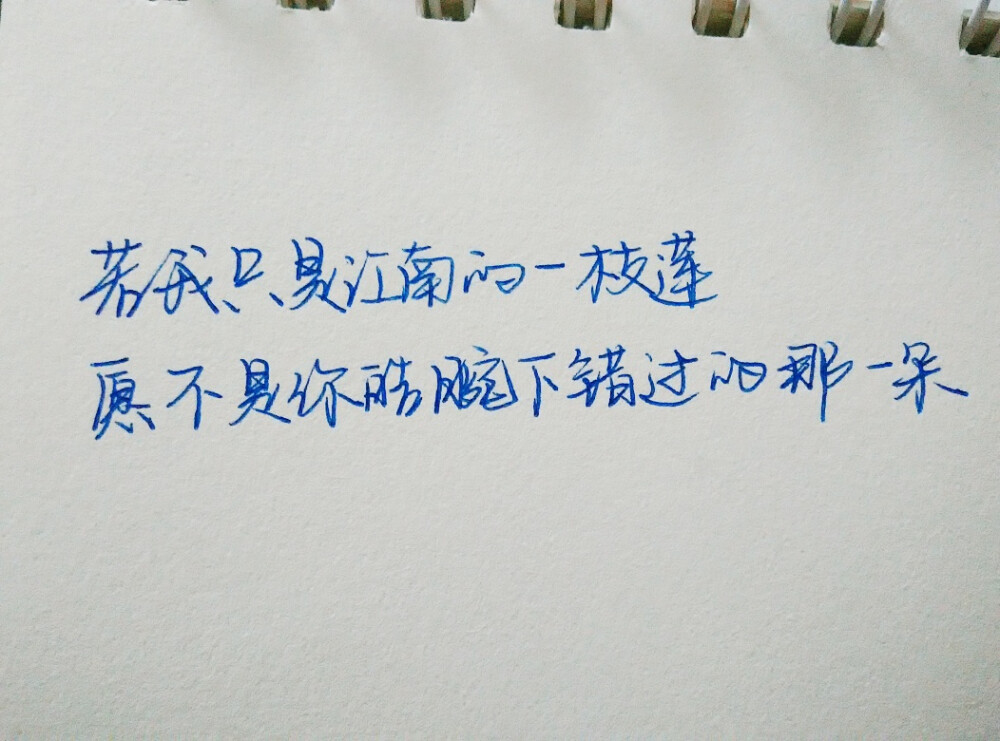 若我只是江南的一枝莲
愿不是你皓腕下错过的那一朵